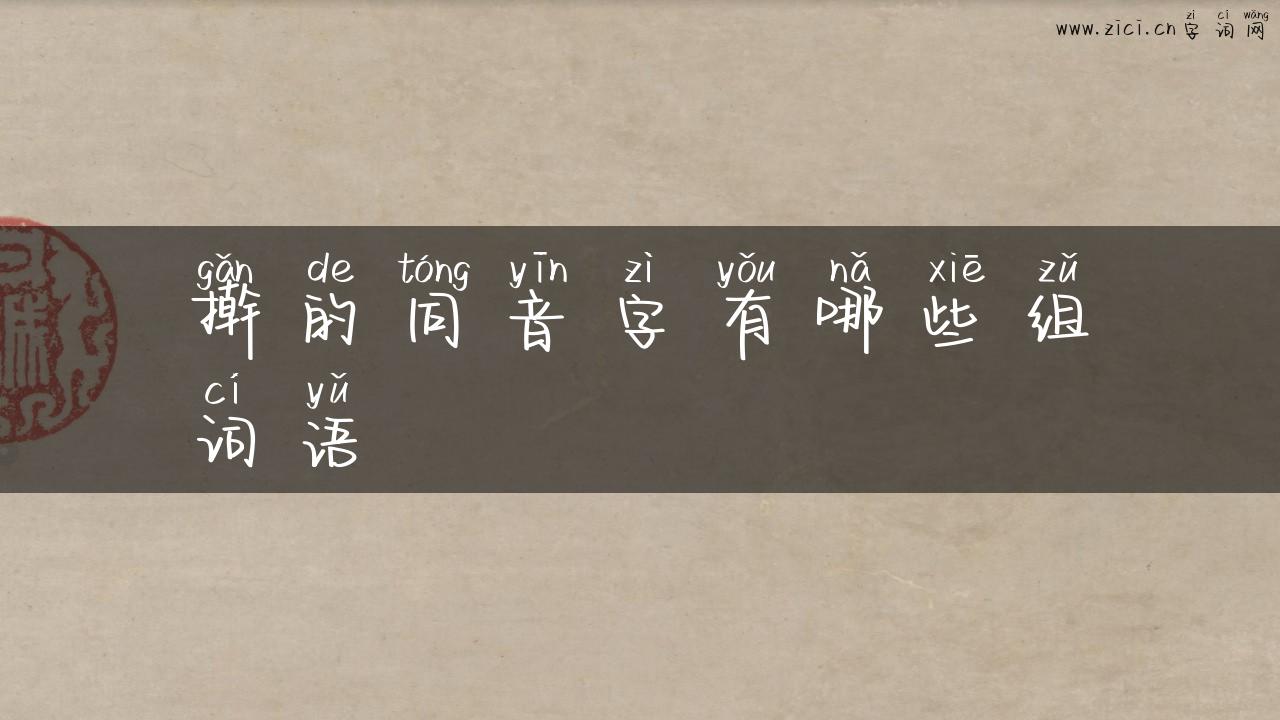 zì cí wǎng
www.zici.cn字词网
gǎn de tóng yīn zì yǒu nǎ xiē zǔ
擀的同音字有哪些组
cí yǔ
词语